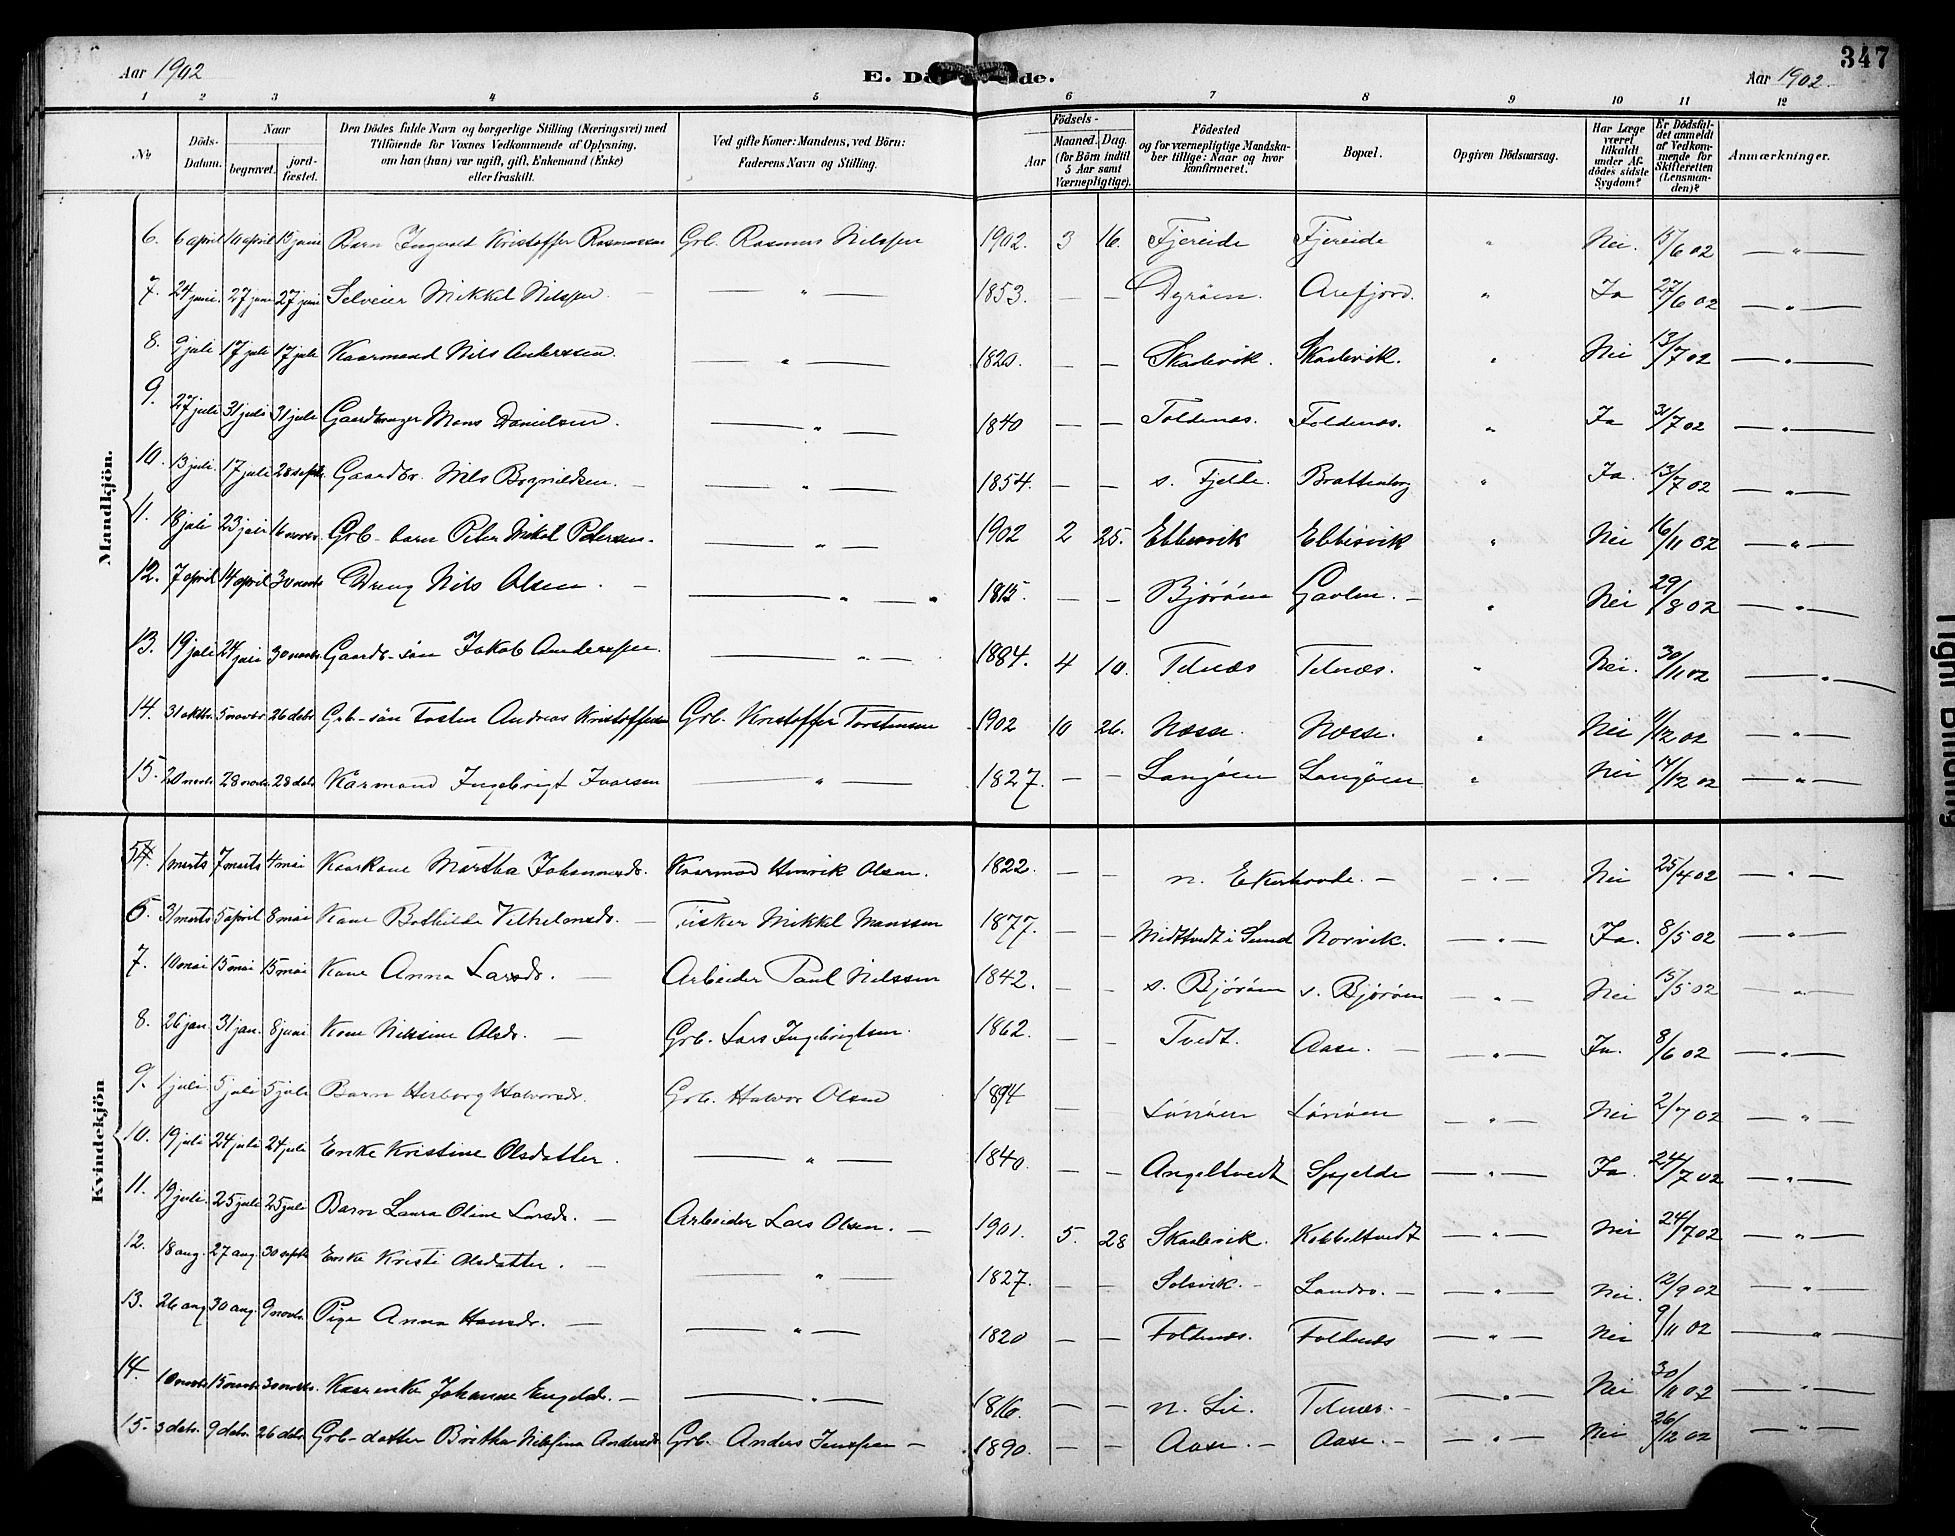 347
Aar 1902 E. Dö de. Aar 1902.
1 2 3 4 5 6 7 8 9 10 11 12
No Döds-Datum. Naar begravet. jordfæstet. Den Dödes fulde Navn og borgerlige Stilling (Næringsvei) med Tilföiende for Voxnes Vedkommende af Oplysning, om han (hun) var ugift, gift, Enkemand (Enke) eller fraskilt. Ved gifte Koner: Mandens, ved Börn: Faderens Navn og Stilling. Födsels- Aar Maaned. Dag. (for Börn indtil 5 Aar samt Værnepligtige). Födested og for værnepligtige Mandskaber tillige: Naar og hvor konfirmeret. Bopæl. Opgiven Dödsaarsag. Har Læge været tilkaldt under Afdödes sidste Sygdom? Er Dödsfaldet anmeldt af Vedkommende for Skifteretten (Lensmanden)? Anmærkninger.
Mandkjön.
6. 6 april 10 april 15 juni Barn Ingvald Kristoffer Rasmussen Grb. Rasmus Nilssen 1902. 3 16. Fjereide Fjereide " Nei. 15/6 02 — " —
7. 24 juni. 27 juni 27 juni Selveier Mikkel Nilssen. — — " — 1853. — — Dyröen. Arefjord. " Ja 27/6 02 — " —
8. 9 juli 17 juli 17 juli Kaarmand Nils Anderssen. — " — 1820. — — Skaalevik. Skaalevik. " Nei 13/7 02 — " —
9. 27 juli 31 juli 31 juli Gaardbruger Mons Danielsen. — " — 1840 — — Foldenæs. Foldenæs. " Ja 31/7 02 — " —
10. 13 juli. 17 juli 28 septb. Gaardbr. Nils Brynildsen. — — " — 1854. — — s. Fjelle. Brattenborg " Ja. 13/7 02 — " —
11. 18 juli 23 juli 16 novbr. Grb-barn Peter Mikal Petersen. — " — 1902 2 25. Ebbesvik Ebbesvik " Nei 16/11 02 — " —
12. 7 april 14 april 30 novb. Dreng Nils Olsen. — — " — " 1815. — — Björöen Gavlen. — " Nei 29/8 02 — " —
13. 19 juli 24 juli 30 novbr. Gaardb-sön Jakob Anderssen. — " — 1884. 4 10. Telnæs Telnæs. " Nei. 30/11 02 — " —
14. 31 oktbr. 5 novbr 26 debr Grb-sön Tosten Andreas Kristoffersen Grb. Kristoffer Torstensen 1902 10 26. Nesse. Nesse. " Nei /12 02 — " —
15. 20 novb. 28 novb. 28 debr. Kårmand Ingebrigt Ivarsen — " — 1827. — — Langöen Langöen " Nei 14/12 02 — " —
Kvindekjön
1 marts 7 marts 4 mai Kaarkone Martha Johannesdr. Kaarmand Henrik Olsen. 1822. — — n. Ekerhovde. — — " — Nei 25/4 02 — " —
31 marts 5 april 8 mai Kone Bothilde Vilhelmsdr. — Fisker Mikkel Monssen 1877. — — Midttvedt i Sund Norvik. — " — Ja. 8/5 02 — " —
7. 10 mai 15 mai 15 mai Kone Anna Larsdr. — Arbeider Paul Nilssen 1842. — — s. Björöen s. Björöen — " — Nei 15/5 02 — " —
8. 26 jan. 31 jan. 8 juni Kone Nilsine Olsdr. — Grb. Lars Ingebrigtsen. 1862. — — Tvedt. Aase. — — " — Ja. 8/6 02 — " —
9. 1 juli. 5 juli 5 juli Barn Herborg Halvorsdr. Grb. Halvor Olsen 1894 — Lönöen Lönöen — " — Nei 2/7 02 — " —
10. 19 juli 24 juli 24 juli Enke Kristine Olsdatter. — " — 1840. — — Angeltvedt Spjelde — " — Ja. 24/7 02 — " —
11. 19 juli. 25 juli 25 juli Barn Laura Oline Larsdr. — Arbeider Lars Olsen. — 1901. 5. 28 Skaalevik. Kobbeltvedt — " — Nei 24/7 02 — " —
12. 18 aug. 27 aug. 30 septb Enke Kristi Olsdatter. — — " — 1827. — — Solsvik. — Landro. — — " — Nei. 12/9 02 — " —
13. 26 aug 30 aug. 9 novb. Pige Anna Hansdr. — — " — 1820 — — Foldnæs. Foldnæs — " — Nei 9/11 02 — " —
14. 10 novb. 15 novb. 30 novbr. Kaarenke Johanne Engelsdr. — — " — 1816. — — n. Lie. Telnæs. — — " — Nei 30/11 02 — " —
15. 3 debr. 9 debr. 26 debr Grb-datter Britha Nilsina Andersdr Grb. Anders Jenssen — 1890. — — Aase. — Aase. — — " — Nei 26/12 02 — " —